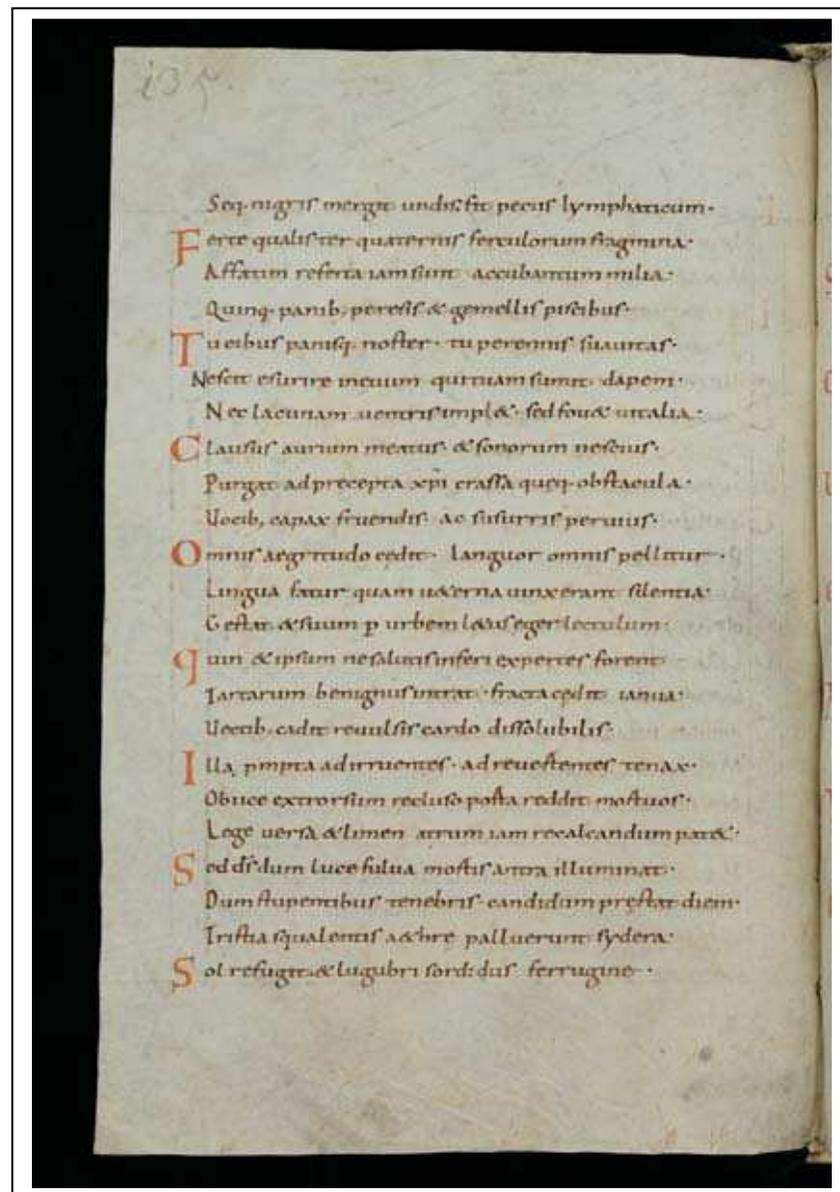 i35.
Seq. nigris mergit undis. fit pecus lymphaticum.
Ferte qualis ter quaternis ferculorum fragmina.
Affatim referta iam sunt accubantum milia.
Quinq. panib; peresis & gemellis piscibus.
Tu cibus panisq. noster. tu perennis suauitas.
Nescit esurire ineuum qui tuam sumit dapem.
Nec lacunam uentris impl&. sed fou& uitalia.
Clausus aurium meatus. & sonorum nescius.
Purgat ad precepta xp̄i crassa queq. obstacula.
Uocib; capax fruendis. ac susurris peruius.
Omnis aegritudo cedit. languor omnis pellitur.
Lingua fatur quam u&erna uinxerant silentia.
Gestat & suum p urbem l&us eger lectulum.
quin & ipsum ne salutis inferi expertes forent
Tartarum benignus intrat. fracta cedit ianua.
Uectib; cadit reuulsis cardo dissolubilis.
Illa pmpta ad irruentes. ad reuertentes tenax.
Obice extrorsum recluso porta reddit mortuos.
Lege uersa & limen atrum iam recalcandum pat&.
Sed ds̄ dum luce fulua mortis antra illuminat.
Dum stupentibus tenebris candidum pręstat diem.
Tristia squalentis a&hrę palluerunt sydera.
Sol refugit. & lugubri sordidus ferrugine.